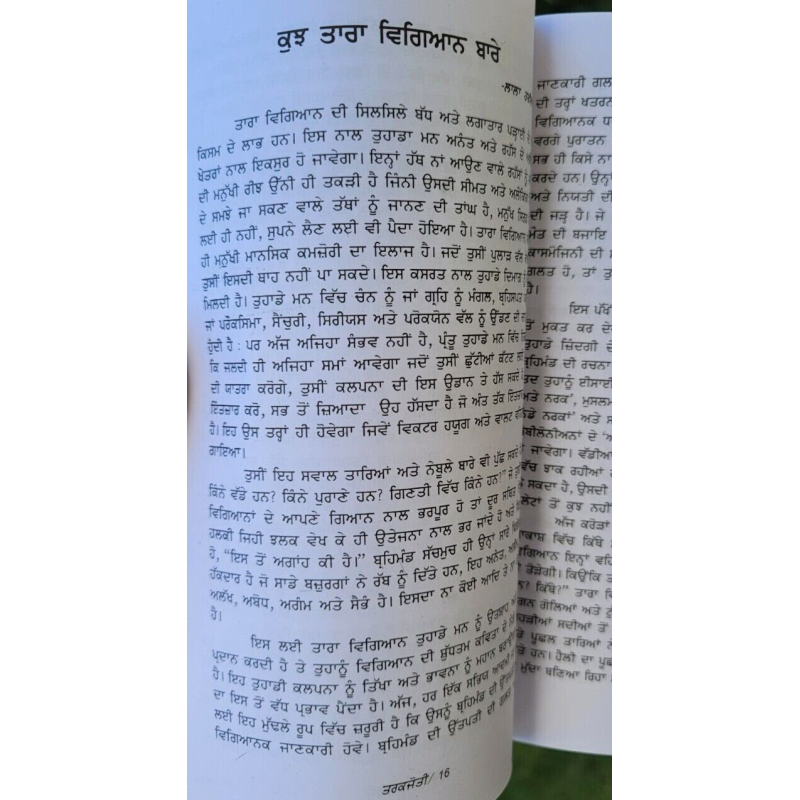 ਕੁਝ ਤਾਰਾ ਵਿਗਿਆਨ ਬਾਰੇ
-ਲਾਲਾ
ਤਾਰਾ ਵਿਗਿਆਨ ਦੀ ਸਿਲਸਿਲੇ ਬੱਧ ਅਤੇ ਲਗਾਤਾਰ ਪੜ੍ਹਾਈ ਦੇ
ਕਿਸਮ ਦੇ ਲਾਭ ਹਨ। ਇਸ ਨਾਲ ਤੁਹਾਡਾ ਮਨ ਅਨੰਤ ਅਤੇ ਰਹੱਸ ਦੇ
ਖੇਤਰਾਂ ਨਾਲ ਇਕਸੁਰ ਹੋ ਜਾਵੇਗਾ। ਇਨ੍ਹਾਂ ਹੱਥ ਨਾਂ ਆਉਣ ਵਾਲੇ ਰਹੱਸਾਂ ਨੂੰ
ਦੀ ਮਨੁੱਖੀ ਰੀਝ ਉੱਨੀ ਹੀ ਤਕੜੀ ਹੈ ਜਿੰਨੀ ਉਸਦੀ ਸੀਮਤ ਅਤੇ
ਦੇ ਸਮਝੇ ਜਾ ਸਕਣ ਵਾਲੇ ਤੱਥਾਂ ਨੂੰ ਜਾਨਣ ਦੀ ਤਾਂਘ ਹੈ, ਮਨੁੱਖ ਸਿਰਫ
ਲਈ ਹੀ ਨਹੀਂ, ਸੁਪਨੇ ਲੈਣ ਲਈ ਵੀ ਪੈਦਾ ਹੋਇਆ ਹੈ। ਤਾਰਾ ਵਿਗਿਆਨ
ਹੀ ਮਨੁੱਖੀ ਮਾਨਸਿਕ ਕਮਜ਼ੋਰੀ ਦਾ ਇਲਾਜ ਹੈ। ਜਦੋਂ ਤੁਸੀਂ ਪੁਲਾੜ ਵੱਲ
ਤੁਸੀਂ ਇਸਦੀ ਥਾਹ ਨਹੀਂ ਪਾ ਸਕਦੇ। ਇਸ ਕਸਰਤ ਨਾਲ ਤੁਹਾਡੇ ਦਿਮਾਗ ਨੂੰ
ਮਿਲਦੀ ਹੈ। ਤੁਹਾਡੇ ਮਨ ਵਿੱਚ ਚੰਨ ਨੂੰ ਜਾਂ ਗ੍ਰਹਿ ਨੂੰ ਮੰਗਲ, ਬ੍ਰਹਿਸਪਤ
ਜਾਂ ਪਰੌਕਸਿਮਾ, ਸੈਂਚੁਰੀ, ਸਿਰੀਯਸ ਅਤੇ ਪਰੋਕਯੋਨ ਵੱਲ ਨੂੰ ਉੱਡਣ ਦੀ
ਹੁੰਦੀ ਹੈ : ਪਰ ਅੱਜ ਅਜਿਹਾ ਸੰਭਵ ਨਹੀਂ ਹੈ, ਪ੍ਰੰਤੂ ਤੁਹਾਡੇ ਮਨ ਵਿੱਚ
ਕਿ ਜਲਦੀ ਹੀ ਅਜਿਹਾ ਸਮਾਂ ਆਵੇਗਾ ਜਦੋਂ ਤੁਸੀਂ ਛੁੱਟੀਆਂ ਕੱਟਣ ਲਈ
ਦੀ ਯਾਤਰਾ ਕਰੋਗੇ, ਤੁਸੀਂ ਕਲਪਨਾ ਦੀ ਇਸ ਉਡਾਨ ਤੇ ਹੱਸ ਸਕਦੇ
ਇੰਤਜ਼ਾਰ ਕਰੋ, ਸਭ ਤੋਂ ਜ਼ਿਆਦਾ ਉਹ ਹੱਸਦਾ ਹੈ ਜੋ ਅੰਤ ਤੱਕ ਇੰਤਜ਼ਾਰ
ਹੈ। ਇਹ ਉਸ ਤਰ੍ਹਾਂ ਹੀ ਹੋਵੇਗਾ ਜਿਵੇਂ ਵਿਕਟਰ ਹਯੂਗ ਅਤੇ ਵਾਲਟ
ਗਾਇਆ।
ਤੁਸੀਂ ਇਹ ਸਵਾਲ ਤਾਰਿਆਂ ਅਤੇ ਨੇਬੂਲੇ ਬਾਰੇ ਵੀ ਪੁੱਛ ਸਕਦੇ
ਕਿੰਨੇ ਵੱਡੇ ਹਨ? ਕਿੰਨੇ ਪੁਰਾਣੇ ਹਨ? ਗਿਣਤੀ ਵਿੱਚ ਕਿੰਨੇ ਹਨ?" ਜੋ
ਵਿਗਿਆਨਾਂ ਦੇ ਆਪਣੇ ਗਿਆਨ ਨਾਲ ਭਰਪੂਰ ਹੋ ਤਾਂ ਦੂਰ ਸਥਿਤ
ਹਲਕੀ ਜਿਹੀ ਝਲਕ ਵੇਖ ਕੇ ਹੀ ਉਤੇਜਨਾ ਨਾਲ ਭਰ ਜਾਂਦੇ ਹੋ ਅਤੇ
ਹੋ, "ਇਸ ਤੋਂ ਅਗਾਂਹ ਕੀ ਹੈ।" ਬ੍ਰਹਿਮੰਡ ਸੱਚਮੁਚ ਹੀ ਉਨ੍ਹਾਂ ਸਾਰੇ
ਹੱਕਦਾਰ ਹੈ ਜੋ ਸਾਡੇ ਬਜ਼ੁਰਗਾਂ ਨੇ ਰੱਬ ਨੂੰ ਦਿੱਤੇ ਹਨ, ਇਹ ਅਨੰਤ,
ਅਲੱਖ, ਅਬੋਧ, ਅਗੰਮ ਅਤੇ ਸੈਭੰ ਹੈ। ਇਸਦਾ ਨਾ ਕੋਈ ਆਦਿ ਤੇ ਨਾ
ਹੈ।
ਇਸ ਲਈ ਤਾਰਾ ਵਿਗਿਆਨ ਤੁਹਾਡੇ ਮਨ ਨੂੰ ਉਤਸ਼ਾਹ
ਪ੍ਰਦਾਨ ਕਰਦੀ ਹੈ ਤੇ ਤੁਹਾਨੂੰ ਵਿਗਿਆਨ ਦੀ ਸ਼ੁੱਧਤਮ ਕਵਿਤਾ ਦੇ
ਹੈ। ਇਹ ਤੁਹਾਡੀ ਕਲਪਨਾ ਨੂੰ ਤਿੱਖਾ ਅਤੇ ਭਾਵਨਾ ਨੂੰ ਮਹਾਨ ਬਣਾਉਂਦੀ
ਦਾ ਇਸ ਤੋਂ ਵੱਧ ਪ੍ਰਭਾਵ ਪੈਂਦਾ ਹੈ। ਅੱਜ, ਹਰ ਇੱਕ ਸਭਿਯ ਆਦਮੀ
ਲਈ ਇਹ ਮੁੱਢਲੇ ਰੂਪ ਵਿੱਚ ਜ਼ਰੂਰੀ ਹੈ ਕਿ ਉਸਨੂੰ ਬ੍ਰਹਿਮੰਡ ਦੀ ਉੱਤਪਤੀ
ਵਿਗਿਆਨਕ ਜਾਣਕਾਰੀ ਹੋਵੇ। ਬ੍ਰਹਿਮੰਡ ਦੀ ਉੱਤਪਤੀ ਦੀ ਗਲਤ
ਤਰਕਜੋਤੀ/ 16
ਜਾਣਕਾਰੀ ਗਲ
ਦੀ ਤਰ੍ਹਾਂ ਖਤਰਨ
ਵਿਗਿਆਨਕ ਧ
ਵਰਗੇ ਪੁਰਾਤਨ
ਸਭ ਹੀ ਕਿਸੇ ਨਾ
ਕਰਦੇ ਹਨ। ਉਨ੍ਹਾਂ
ਅਤੇ ਨਿਯਤੀ ਦੀ
ਦੀ ਜੜ੍ਹ ਹੈ। ਜੇ
ਮੰਤ ਦੀ ਬਜਾਇ
ਕਾਸਮੋਜਿਨੀ ਦੀ
ਗਲਤ ਹੋ, ਤਾਂ ਤੁ
ਹੈ।
ਇਸ ਪੱਖੋਂ
ਤੋਂ ਮੁਕਤ ਕਰ ਦੇ
ਤੁਹਾਡੇ ਜ਼ਿੰਦਗੀ ਦੇ
ਬ੍ਰਹਿਮੰਡ ਦੀ ਰਚਨਾ
ਤਦ ਤੁਹਾਨੂੰ ਈਸਾਈ
ਅਤੇ ਨਰਕ', ਮੁਸਲਮ
ਨਰਕਾਂ' ਅਤੇ ਸ
ਬੀਲੋਨੀਅਨਾਂ ਦੇ 'ਅ
ਜਾਵੇਗੀ। ਵੱਡੀਆਂ
ਵਿੱਚ ਝਾਕ ਰਹੀਆਂ
ਸਕਦਾ ਹੈ, ਉਸਦੀ
ਤੋਂ ਕੁਝ ਨਹੀਂ
ਅੱਜ ਕਰੋੜਾਂ
ਵਿੱਚ ਕਿੱਥੇ
ਵਿਗਿਆਨ ਇਨ੍ਹਾਂ ਵਹਿ
ਤੋੜੇਗੀ। ਕਿਉਂਕਿ ਤ
ਕਿੱਥੇ?" ਤਾਰਾ ਵਿ
ਗੋਲਿਆਂ ਅਤੇ ਨੂੰ
ਸਦੀਆਂ ਤੋਂ
ਪੂਛਲ ਤਾਰਿਆਂ ਨੇ
ਹਨ। ਹੈਲੀ ਦਾ ਪੂਛ
ਮੁੱਦਾ ਬਣਿਆ ਰਿਹਾ